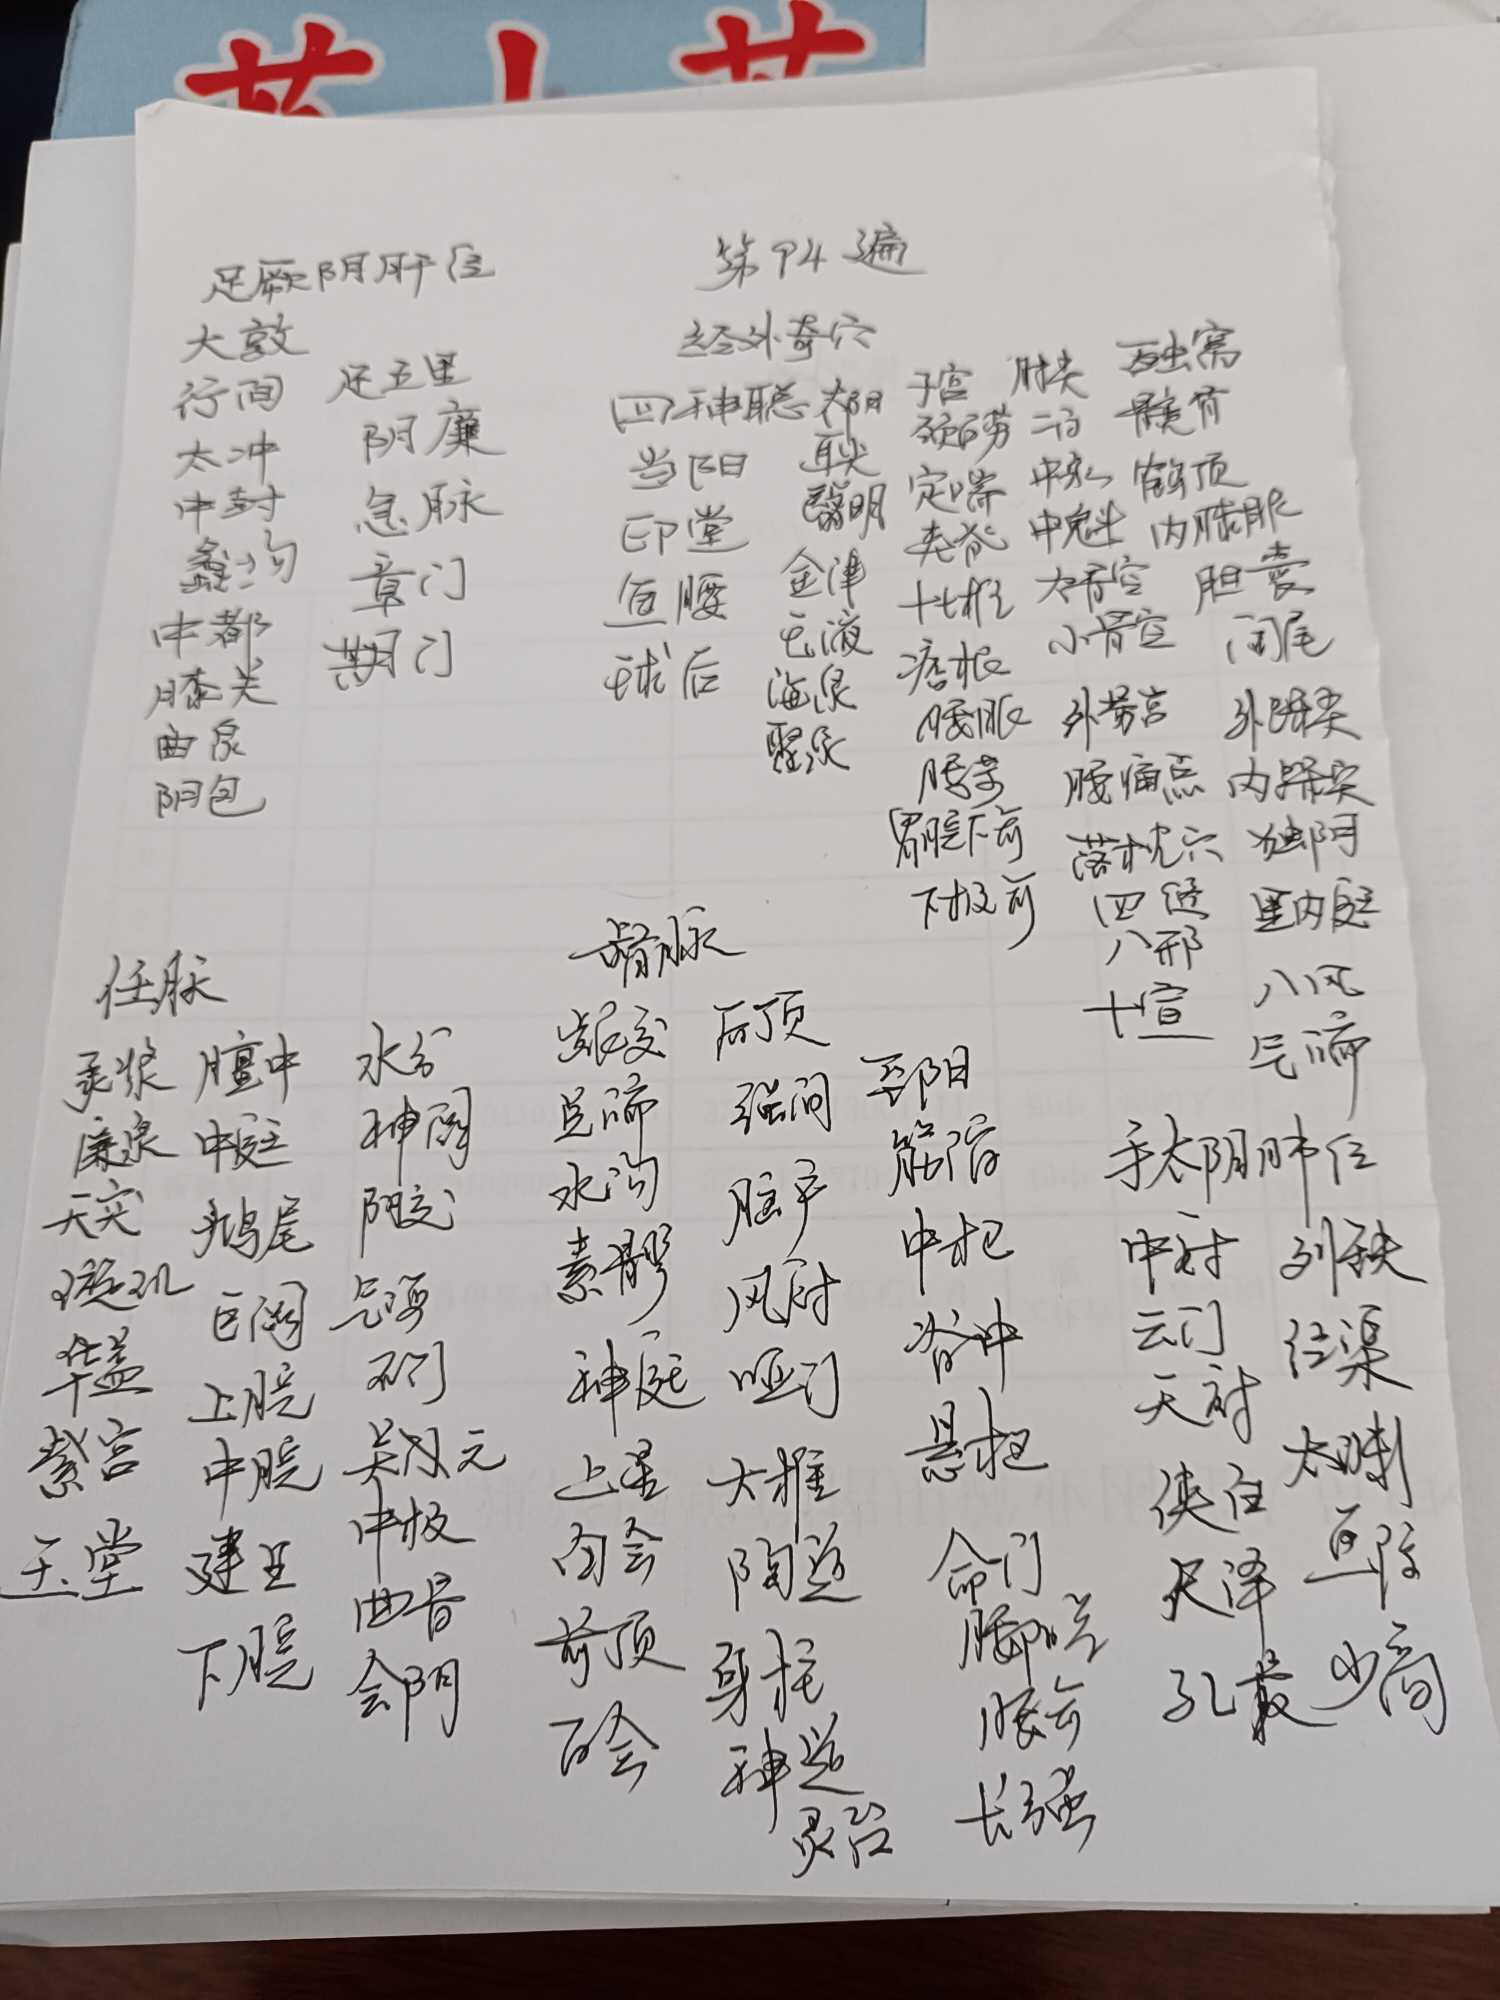 足厥阴肝经
大敦
行间
太冲
中封
蠡沟
中都
膝关
曲泉
阴包
足五里
阴廉
急脉
章门
期门
第94遍
经外奇穴
四神聪
当阳
印堂
鱼腰
球后
太阳
耳尖
翳明
金津
玉液
海泉
聚泉
子宫
颈百劳
定喘
夹脊
十七椎
痞根
腰眼
腰宜
胃脘下俞
下极俞
肘尖
二白
中泉
中魁
大骨空
小骨空
外劳宫
腰痛点
落枕穴
四缝
八邪
十宣
百虫窝
髋骨
鹤顶
内膝眼
胆囊
阑尾
外踝尖
内踝尖
独阴
里内庭
八风
气端
任脉
承浆
廉泉
天突
璇玑
华盖
紫宫
玉堂
膻中
中庭
鸠尾
巨阙
上脘
中脘
建里
下脘
水分
神阙
阴交
气海
石门
关元
中极
曲骨
会阴
督脉
龈交
兑端
水沟
素髎
神庭
上星
囟会
前顶
百会
后顶
强间
脑户
风府
哑门
大椎
陶道
身柱
神道
灵台
至阳
筋缩
中枢
脊中
悬枢
命门
腰阳关
腰俞
长强
手太阴肺经
中府
云门
天府
侠白
尺泽
孔最
列缺
经渠
太渊
鱼际
少商